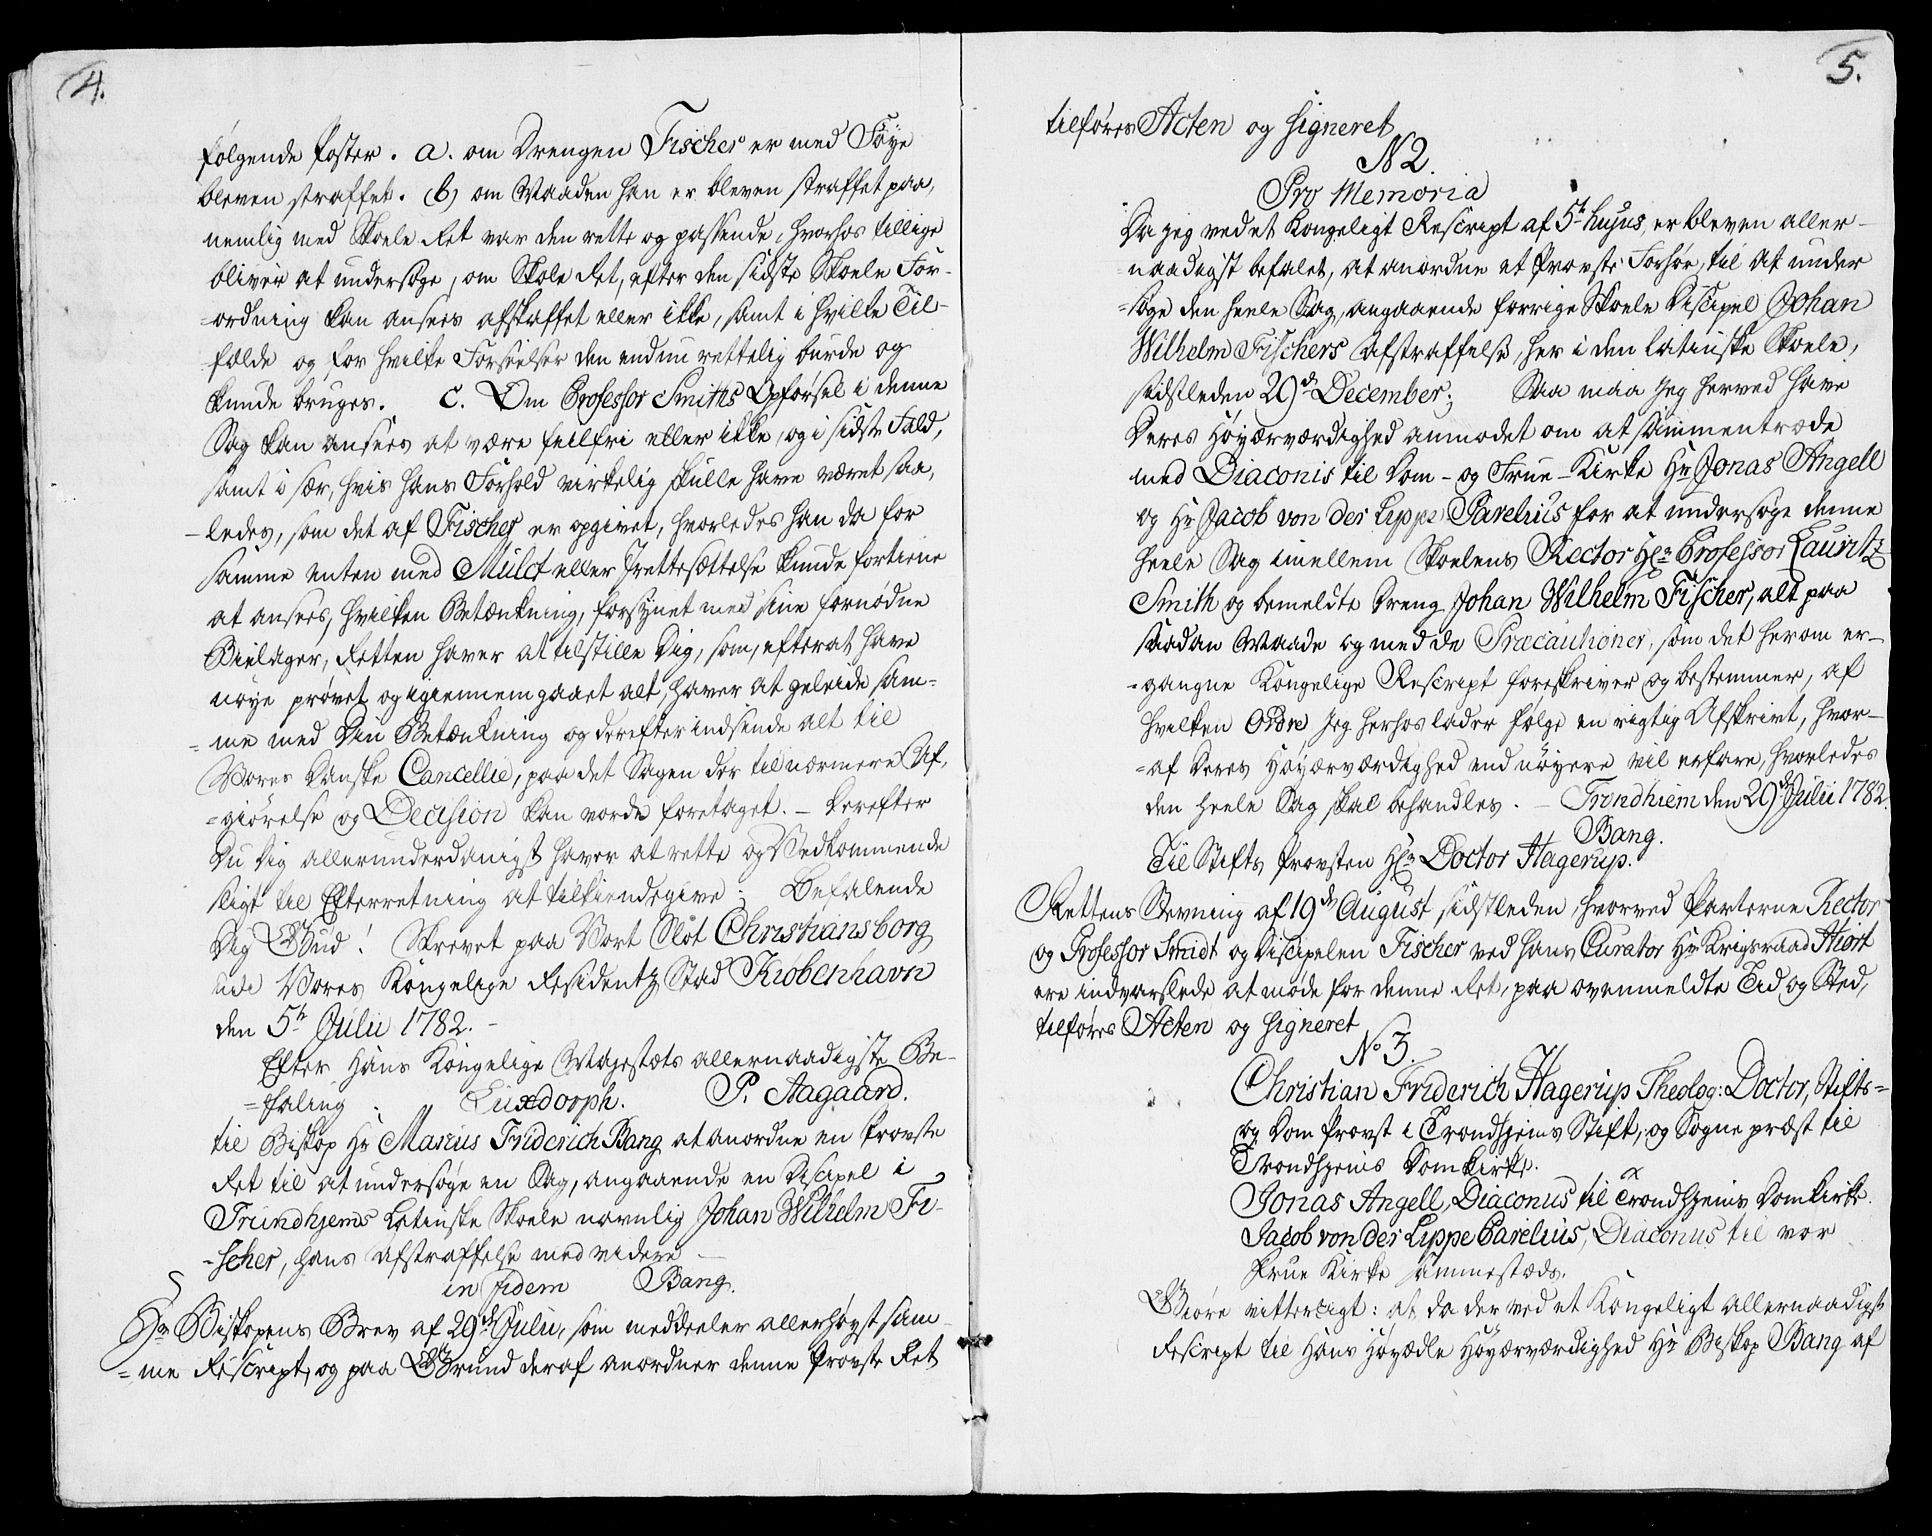 4.
følgende Poster. a. om Drengen Fischer er med Føye
bleven straffet. (b) om Maaden han er bleven straffet paa,
nemlig med Skole Ret var den rette og passende, hvorhos tillige
bliver at undersøge, om Skole Ret, efter den sidste Skoele For-
-ordning kan ansees afskaffet eller ikke, samt i hvilke Til-
fælde og for hvilke Forseelser den endnu rettelig burde og
kunde bruges. C. Om Professor Smiths Opførsel i denne
Sag kan ansees at være feilfri eller ikke, og i sidste Fald,
samt i sær, hvis hans Forhold virkelig skulle have været saa,
-ledes, som det af Fischer er opgivet, hvorledes han da for
samme enten med Mulct eller Irettesættelse kunde fortiene
at ansees, hvilken Betænkning, forsynet med sine fornødne
Bielager, Retten haver at tilstille Dig, som, efterat have
nøye prøvet og igiennemgaaet alt, haver at geleide sam-
=me med Din Betænkning og derefter indsende alt til
Vores Danske Cancellie, paa det Sagen der til nærmere Af-
=giørelse og Decision kan vorde foretaget. - Derefter
Du Dig allerunderdanigst haver at rette og Vedkommende
sligt til Efterretning at tilkiendegive; Befalende
Dig Gud! Skrevet paa Vort Slot Christiansborg
udi Vores Kongelige Residentz Stad Kiøbenhavn
den 5te Julii 1782. -
Efter Hans Kongelige Mayestæts allernaadigste Be-
=faling. Luxdorph. P. Aagaard.
til Biskop Hr Marcus Friderich Bang at anordne en Provste
Ret til at undersøge en Sag, angaaende en Discipel i
Trundhjems Latinske Skoele navnlig Johan Wilhelm Fi-
-scher, hans Afstraffelse med videre -
in fidem Bang.
Hr Biskopens Brev af 29de Julii, som meddeeler allerhøyst sam-
=me Rescript, og paa Grund deraf anordner denne Provste Ret
5.
tilføres Acten og signeret
N 2.
Pro Memoria
Da jeg ved et Kongeligt Rescript af 5te hujus, er bleven aller-
=naadigst befalet, at anordne et Provste Forhør, til at under
=søge den heele Sag, angaaende forrige Skoele Discipel Johan
Wilhelm Fischers Afstraffelse, her i den latinske Skoele,
sidstleden 29de December; Saa maa jeg herved have
Deres Høyærværdighed anmodet om at sammentræde
med Diaconis til Dom- og Frue-Kirke Hr Jonas Angell
og Hr Jacob von der Lippe Parelius for at undersøge denne
heele Sag imellem Skoelens Rector Hr Professor Lauritz
Smith og bemeldte Dreng Johan Wilhelm Fischer, alt paa
saadan Maade og med de Præcautioner, som det herom er-
-gangne Kongelige Rescript foreskriver og bestemmer, af
hvilken Ordre jeg herhos lader følge en rigtig Afskrivt, hvor-
=af Deres Høyærværdighed end nøyere vil erfare, hvorledes
den heele Sag skal behandles. - Trondhiem den 29de Julii 1782.
Bang.
Til Stifts Provsten Hr Doctor Hagerup.
Rettens Stevning af 19de August sidstleden hvorved Parterne Rector
og Professor Smidt og Discipelen Fischer ved hans Curator Hr Krigsraad Hiort
ere indvarslede at møde for denne Ret, paa ovenmeldte Tid og Sted,
tilføres Acten og signeret
No 3.
Christian Friderich Hagerup Theolog: Doctor, Stifts=
og Dom Provst i Trondhjems Stift, og Sogne præst til
Trondhjems Domkirke.
Jonas Angell, Diaconus til Trondhjems Domkirke.
Jacob von der Lippe Parelius, Diaconus til vor
Frue Kirke sammestæds.
Giøre vitterligt: at da der ved et Kongeligt allernaadigst
Rescript til Hans Høyædle Høyærværdighed Hr Biskop Bang af